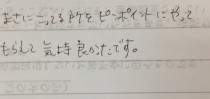 まさにこってる所をピンポイントにやって
もらえて気持良かったです。